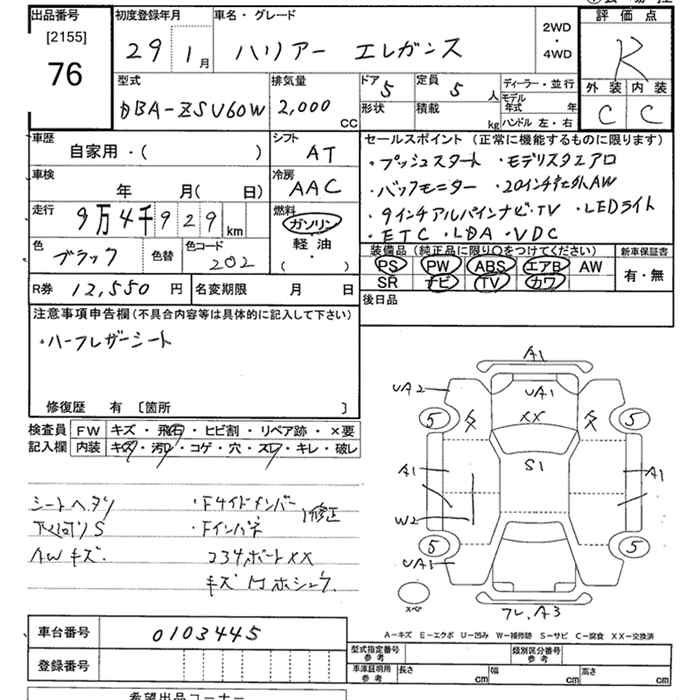 出品番号
[2155]
76
初度登録年月
29 1月
車名・グレード
ハリアー エレガンス
2WD
・
4WD
評価点
R
外装 内装
C C
型式
DBA-ZSU60W
排気量
2,000
CC
ドア 5
形状
定員 5 人
積載 kg
ディーラー・並行
モデル年式 年
ハンドル 左・右
車歴
自家用・( )
シフト
AT
セールスポイント(正常に機能するものに限ります)
・プッシュスタート ・モデリスタエアロ
・バックモニター ・20インチ社外AW
・9インチアルパインナビ・TV ・LEDライト
・ETC ・LDA ・VDC
車検
年 月( 日)
冷房
AAC
走行
9万4千929 km
燃料
ガソリン
・
軽油
・
( )
色
ブラック
色替
色コード
202
装備品(純正品に限り○をつけてください)
PS PW ABS エアB AW
SR ナビ TV カワ
新車保証書
有・無
R券 12,550 円
名変期限 月 日
後日品
注意事項申告欄(不具合内容等は具体的に記入して下さい)
・ハーフレザーシート
修復歴 有 〔箇所 〕
検査員記入欄
FW キズ・飛石・ヒビ割・リペア跡・×要
内装 キズ・汚レ・コゲ・穴・スレ・キレ・破レ
シートヘタリ
下回りS
AWキズ.
・Fサイドメンバー
・Fインパネ
修正
コ34ボートXX
A1
UA2
UA1
XX
5
5
A1
S1
A1
W2
5
5
UA1
スペア
フレ.A3
A-キズ E-エクボ U-凹み W-補修跡 S-サビ C-腐食 XX-交換済
車台番号
0103445
登録番号
型式指定番号
参考
類別区分番号
参考
車庫証明用
参考
長さ cm
幅 cm
高さ cm
希望出品コーナー